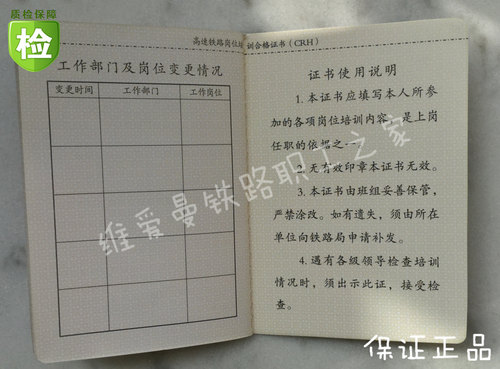 质检保障
检
高速铁路岗位培训合格证书(CRH)
工作部门及岗位变更情况
变更时间 工作部门 工作岗位
证书使用说明
1.本证书应填写本人所参
加的各项岗位培训内容,是上岗
任职的依据之一。
2.无有效印章本证书无效。
3.本证书由班组妥善保管,
严禁涂改。如有遗失,须由所在
单位向铁路局申请补发。
4.遇有各级领导检查培训
情况时,须出示此证,接受检
查。
维爱曼铁路职工之家
保证正品